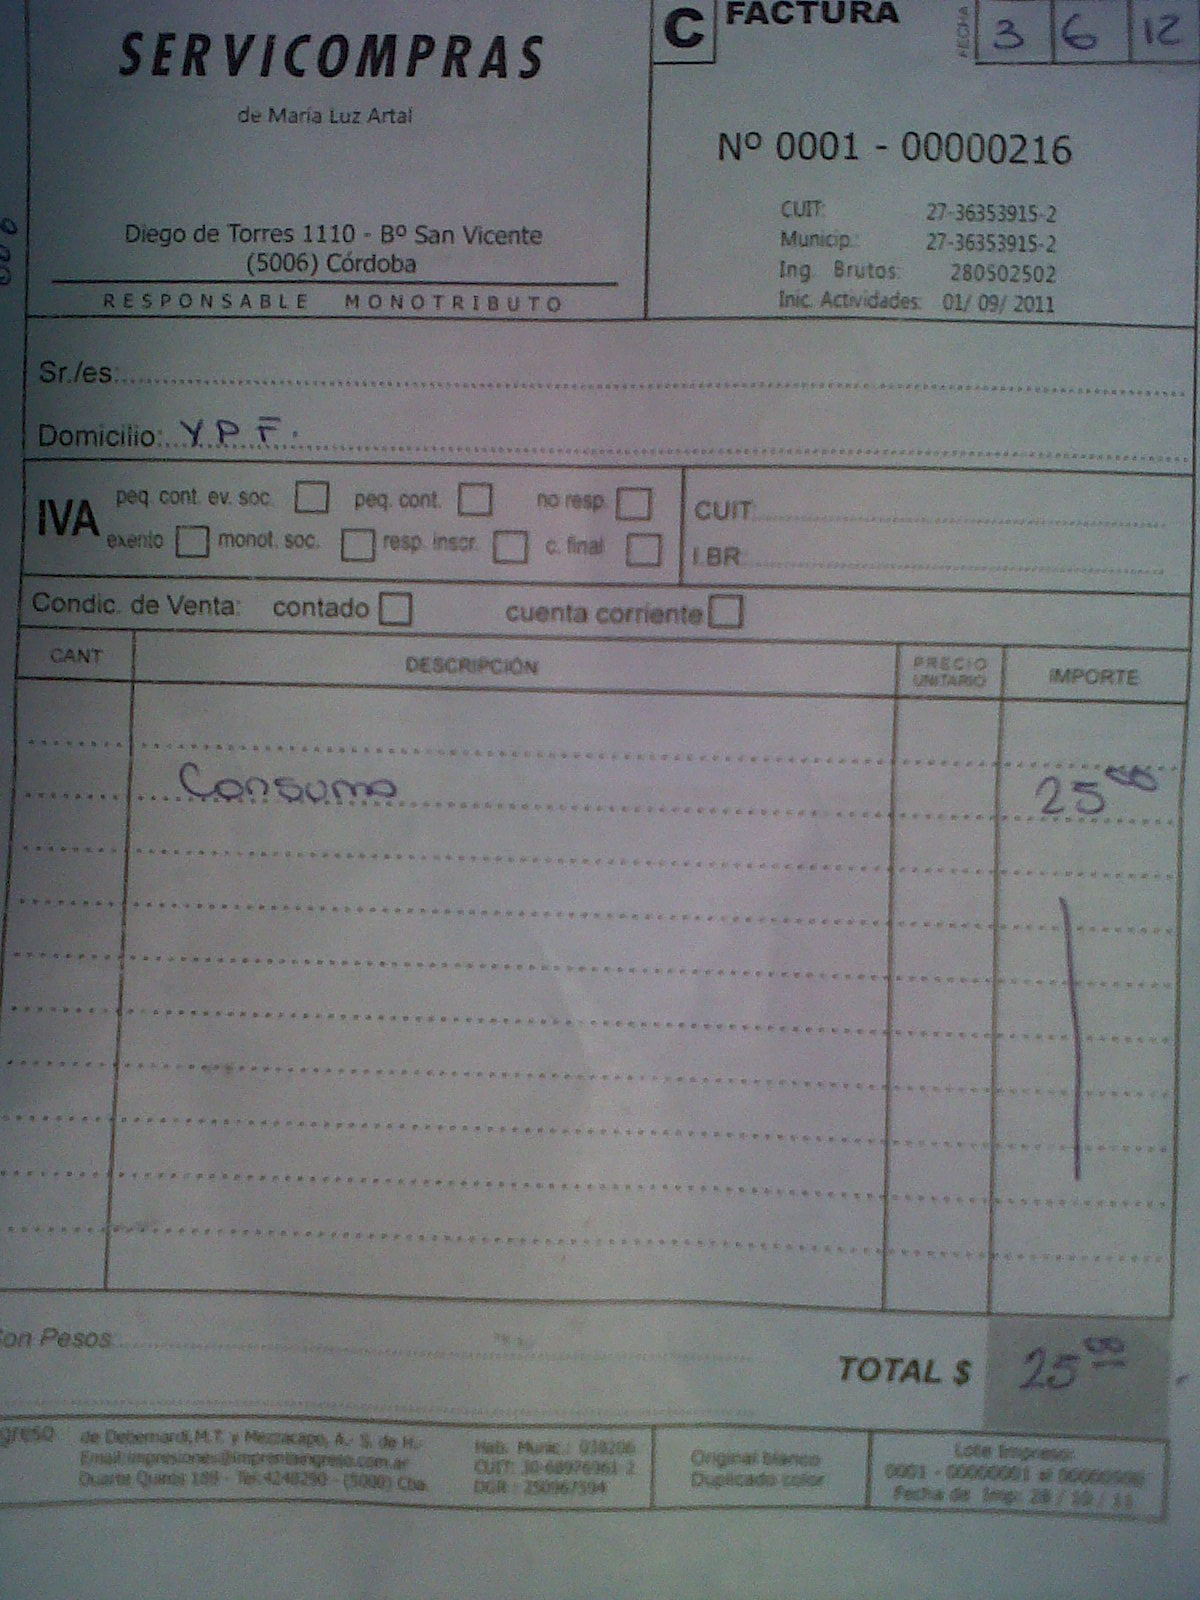 SERVICOMPRAS
de María Luz Artal
Diego de Torres 1110 - Bº San Vicente
(5006) Córdoba
RESPONSABLE MONOTRIBUTO
C FACTURA
FECHA 3 6 12
Nº 0001 - 00000216
CUIT: 27-36353915-2
Municip.: 27-36353915-2
Ing. Brutos: 280502502
Inic. Actividades: 01/ 09/ 2011
Sr./es:
Domicilio: YPF.
IVA
peq. cont. ev. soc. peq. cont. no resp.
exento monot. soc. resp. inscr. c. final
CUIT:
I.BR:
Condic. de Venta: contado cuenta corriente
CANT DESCRIPCIÓN PRECIO UNITARIO IMPORTE
Consumo 25 00
on Pesos
TOTAL $ 25 00
greso de Debernardi, M.T. y Mezzacapo, A.- S. de H.-
Email:impresiones@imprentaingreso.com.ar
Duarte Quirós 188 - Tel:4248290 - (5000) Cba.
Hab. Munic.: 038206
CUIT: 30-68976961-2
DGR : 250967594
Original blanco
Duplicado color
Lote Impreso:
0001 - 00000001 al
Fecha de Imp: 28 / 10 / 11